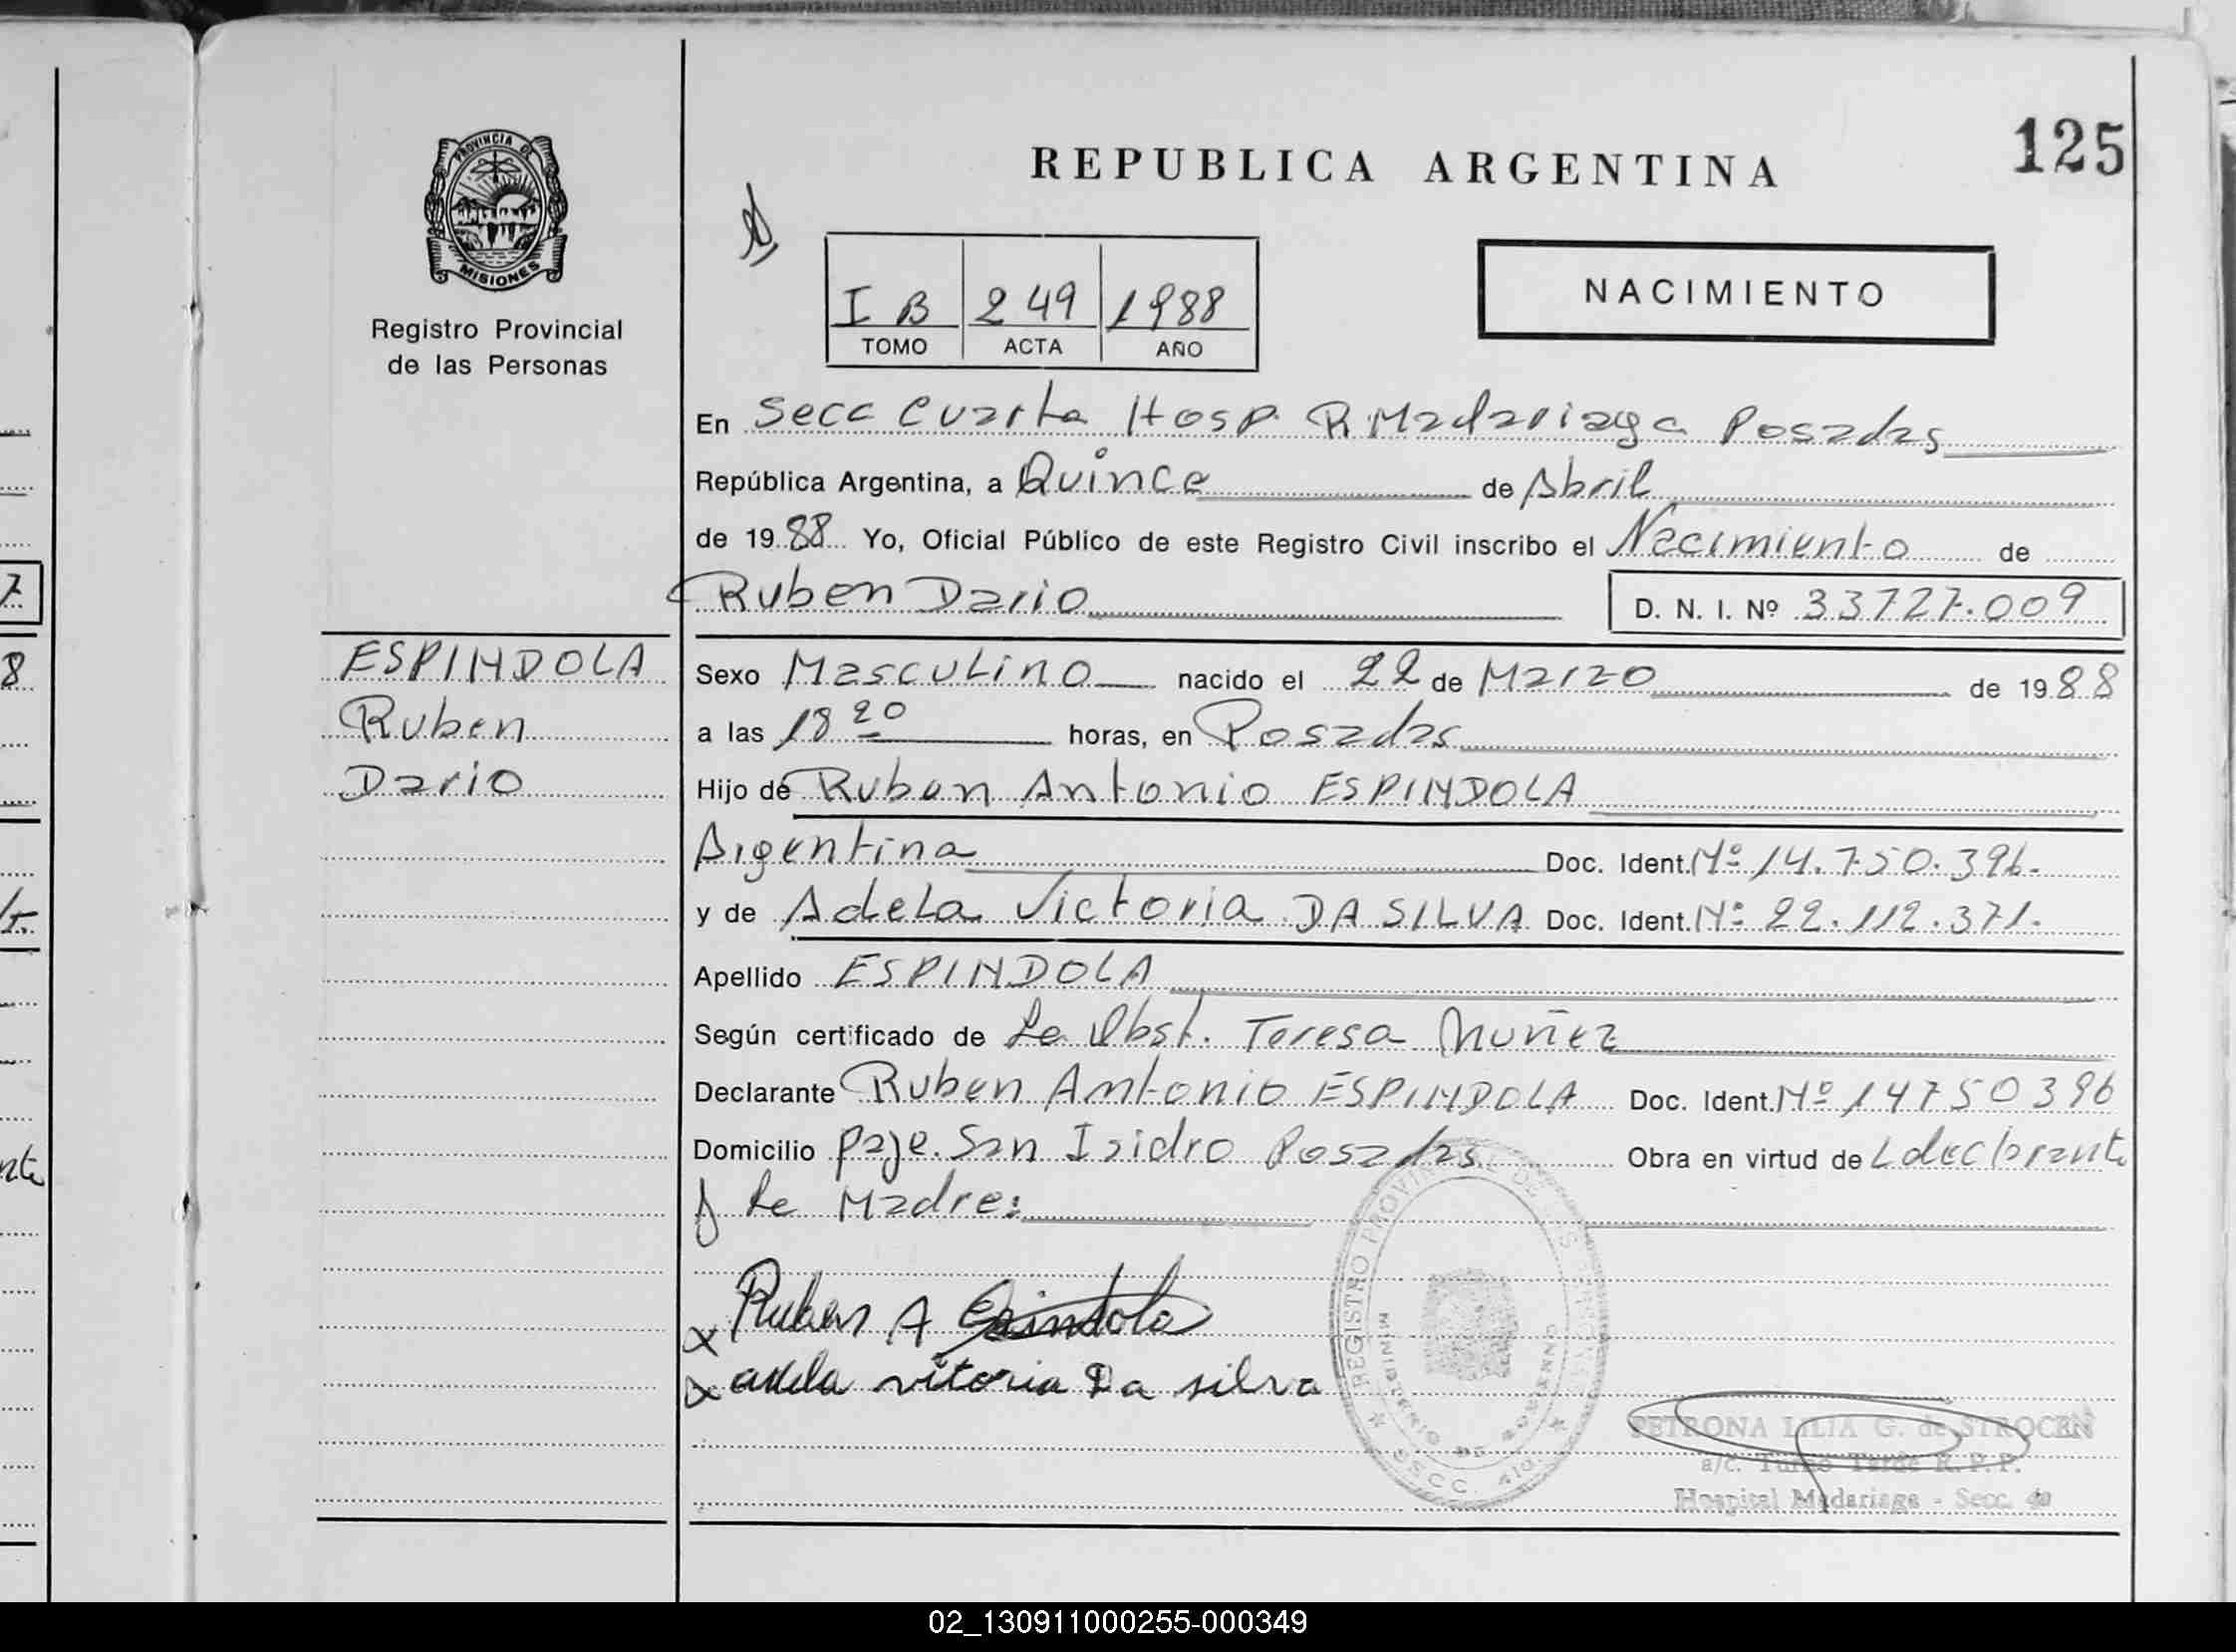 125
REPUBLICA ARGENTINA
PROVINCIA DE
MISIONES
Registro Provincial
de las Personas
I B 249 1988
TOMO ACTA AÑO
NACIMIENTO
En Secc Cuarta Hosp. R. Madariaga Posadas
República Argentina, a Quince de Abril
de 1988 Yo, Oficial Público de este Registro Civil inscribo el Nacimiento de
Ruben Dario D. N. I. Nº 33727.009
ESPINDOLA
Ruben
Dario
Sexo Masculino nacido el 22 de Marzo de 1988
a las 18 20 horas, en Posadas
Hijo de Ruben Antonio ESPINDOLA
Argentina Doc. Ident. Nº 14.750.396.
y de Adela Victoria DA SILVA Doc. Ident. Nº 22.112.371.
Apellido ESPINDOLA
Según certificado de La Obst. Teresa Nuñez
Declarante Ruben Antonio ESPINDOLA Doc. Ident. Nº 14750396
Domicilio paje. San Isidro Posadas Obra en virtud de L declarante
y La Madre:
x Ruben A Espindola
x adela vitoria Da silva
REGISTRO PROVINCIAL DE LAS PERSONAS
MINISTERIO DE GOBIERNO
SECC. 4ta.
PETRONA LILIA G. de STROCEN
a/c. Turno Tarde R. P. P.
Hospital Madariaga - Secc. 4a
02_130911000255-000349